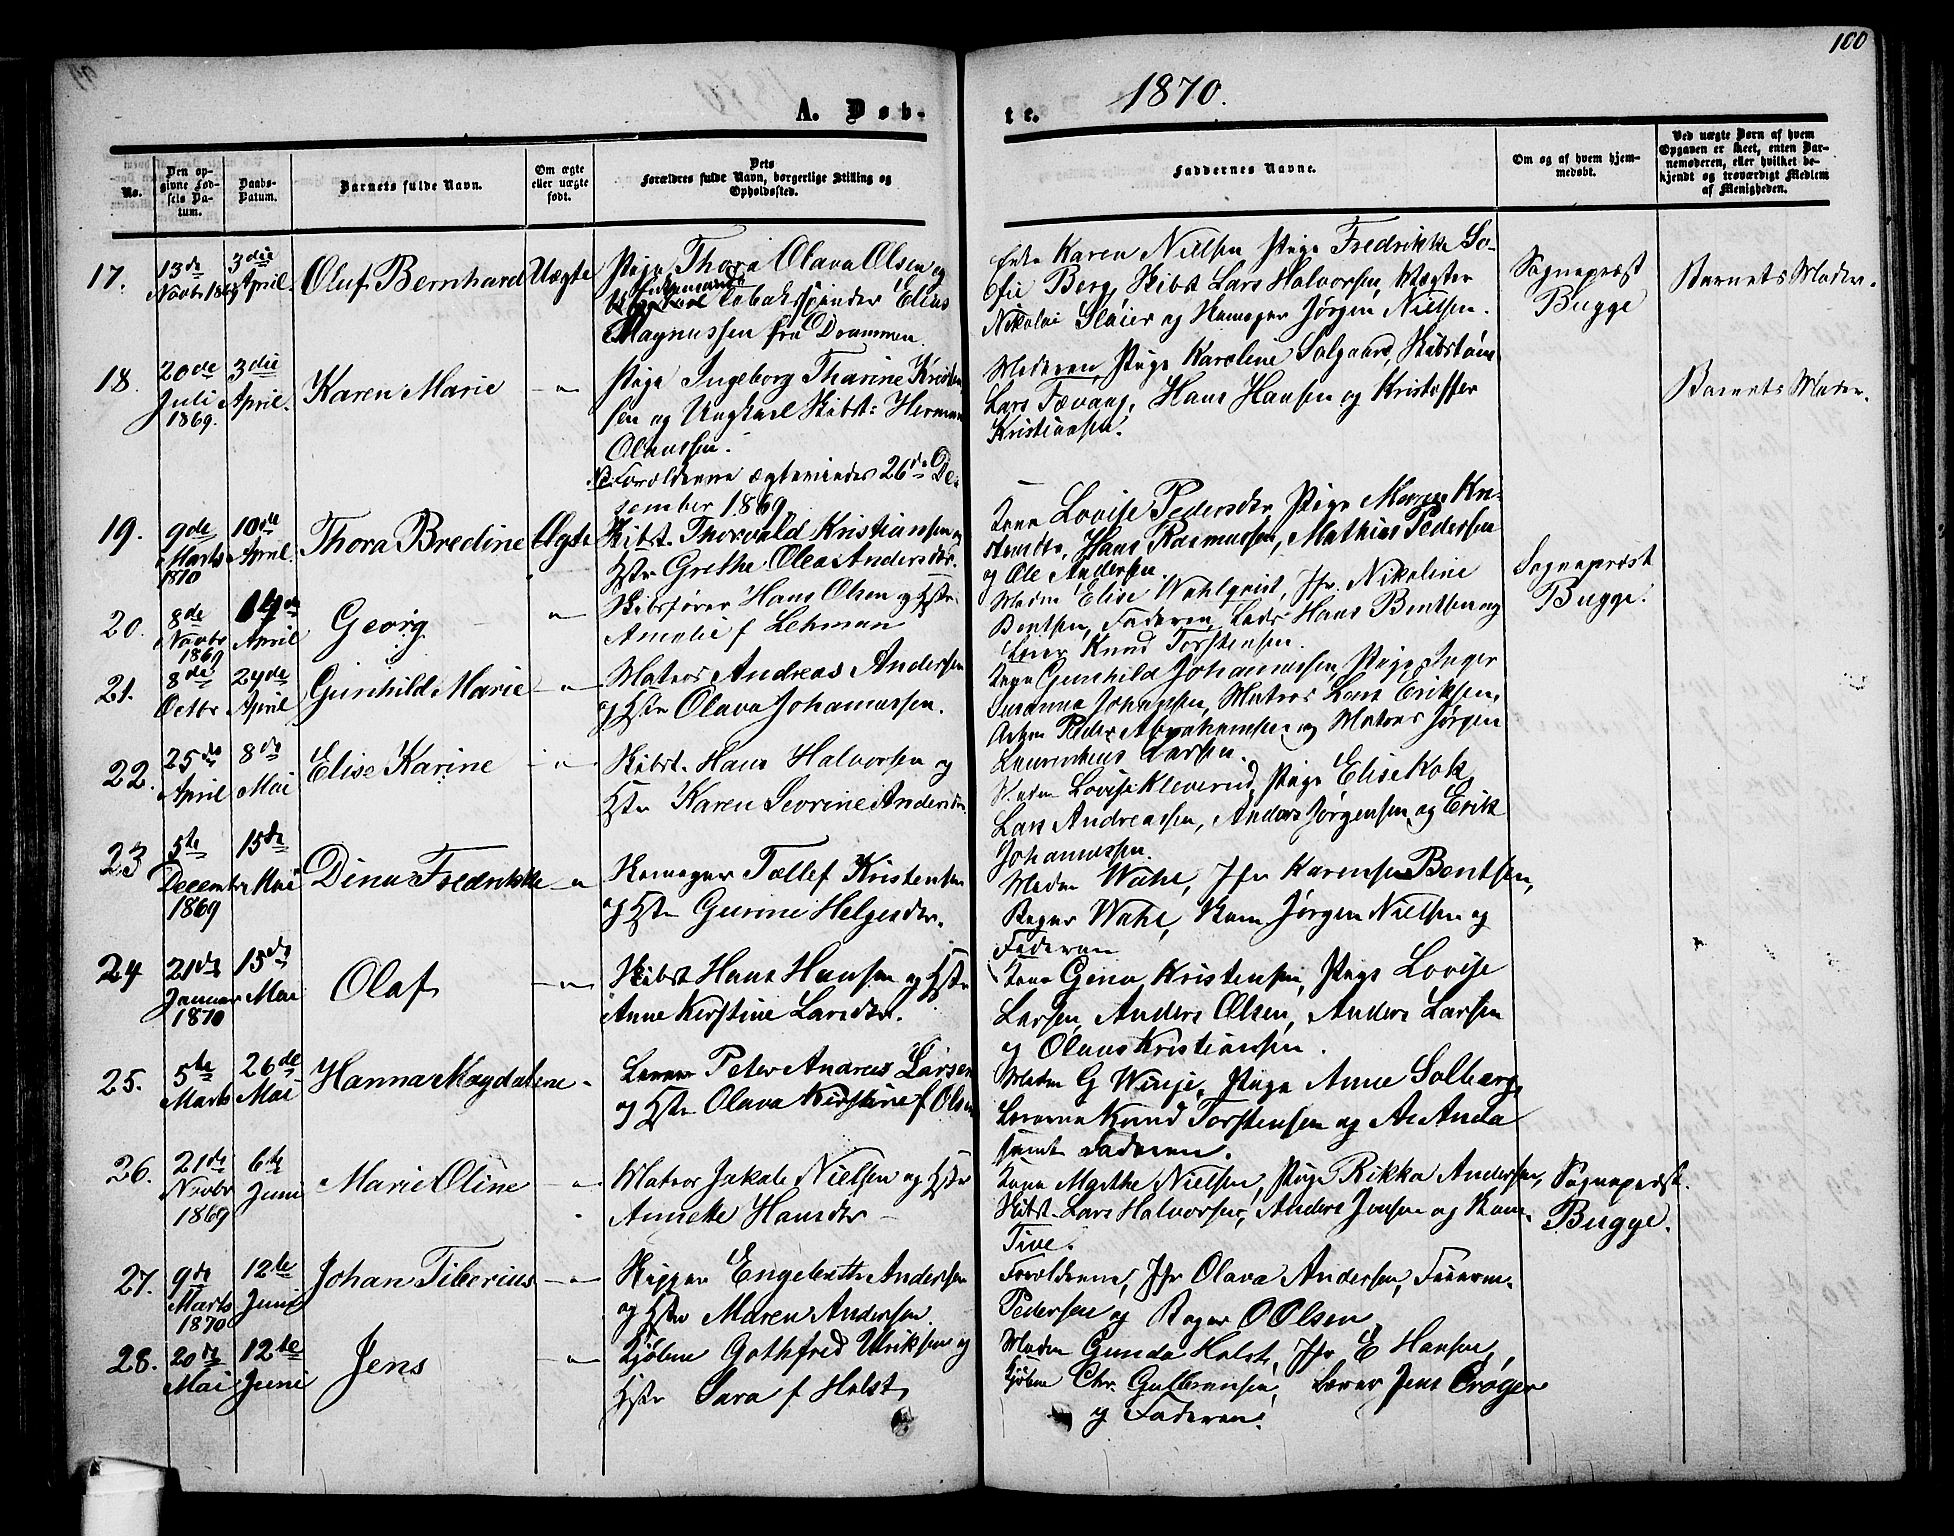 100
1870.
A. Døb-
te.
No.
Den op-
givne Fød-
sels Da-
tum.
Daabs-
Datum.
Barnets fulde Navn.
Om ægte
eller uægte
født.
Dets
Forældres fulde Navn, borgerlige Stilling og
Opholdssted.
Faddernes Navne.
Om og af hvem hjem-
medøbt.
Ved uægte Børn af hvem
Opgaven er skeet, enten Bar-
nemoderen, eller hvilket be-
kjendt og troværdigt Medlem
af Menigheden.
17.
13de
Novbr 1869
3die
April.
Oluf Bernhard
Uægte
Pige Thora Olava Olsen og
Tobakspinder Elius
Magnussen fra Drammen.
Enke Karen Nielsen Pige Fredrikke So-
fie Berg, Skibst Lars Halvorsen, Vægter
Nikolai Slaier og Jørgen Nielsen.
Sognepræst
Bugge
Barnets Moder.
18.
20de
Juli
1869.
3die
April.
Karen Marie
-"-
Pige Ingeborg Thorine Kristen
sen og Ungkarl Skibst: Herman
Olaussen.
NB. Forældrene ægteviedes 26de De-
cember 1869
Moderen, Pige Karoline Solgaard, Skibstøm
Lars Tævang, Hans Hansen og Kristoffer
Kristiansen.
Barnets Moder.
19.
9de
Marts
1870
10de
April.
Thora Bredine
Ægte
Skibst. Thorvald Kristiansen og
Hstr Grethe Olea Andersdtr.
Kone Lovise Pedersdtr, Pige Maren Kri-
stensdtr, Hans Rasmussen, Mathias Pedersen
og Ole Andersen.
20.
8de
Novbr
1869
14de
April
Georg
-"-
Skibsfører Hans Olsen og Hstr.
Amalie f Lehman
Madm Elise Wahlqvist, Jfr. Nikoline
Bentsen, Faderen, Lods Hans Bentsen og
Lærer Knud Torstensen.
Sognepræst
Bugge.
21.
8de
Octbr
24de
April
Gunhild Marie
-"-
Matros Andreas Andersen
og Hstr Olava Johannessen.
Kone Gunhild Johannessen, Pige Inger
Susanne Johansen, Matros Lars Eriksen,
Peder Abrahamsen og Matros Jørgen
Laurentius Larsen.
22.
25de
April
8de
Mai
Elise Karine
-"-
Skibst. Hans Halvorsen og
Hstr Karen Severine Andersdtr
Madm Lovise Kleverud, Pige Elise Kok,
Lars Andreassen, Anders Jørgensen og Erik
Johannessen.
23
5te
Decembr
1869
15de
Mai
Dina Fredrikke
-"-
Tellef Kristensen
og Hstr Gurine Helgesdtr.
Madm Wahl, Jfr Karense Bentsen,
Bager Wahl, Jørgen Nielsen og
Faderen
24
21de
Januar
1870
15de
Mai
Olaf
-"-
Skibst Hans Hansen og Hstr
Anne Kirstine Larsdtr.
Kone Gina Kristensen, Pige Lovise
Larsen, Anders Olsen, Anders Larsen
og Olaus Kristiansen.
25.
5te
Marts
26de
Mai
Hanna Magdalene
-"-
Lærer Peter Andreas Larsen
og Hstr Olava Kirstine f Olsen
Madm G Winje, Pige Anne Solberg,
Lærerne Knud Torstensen og
samt Faderen.
26.
21de
Novbr
1869
6te
Juni
Marie Oline
-"-
Matros Jakob Nielsen og Hstr
Annette Hansdtr
Kone Marthe Nielsen, Pige Rikka Andersen,
Skibst. Lars Halvorsen, Anders Jensen og
Tive.
Sognepræst.
Bugge.
27.
9de
Marts
1870
12te
Juni
Johan Tiberius
-"-
Skipper Engebreth Andersen
og Hstr Maren Andersen.
Forældrene, Jfr Olava Andersen,
Pedersen og Bager O Olsen
28.
20de
Mai
12te
Juni
Jens
-"-
Kjøbm Gothfred Ulriksen og
Hstr Sara f Holst
Madm Gunda Holst, Jfr E Hansen,
Kjøbm Chr. Gulbransen, Lærer Jens Crøger
og Faderen.